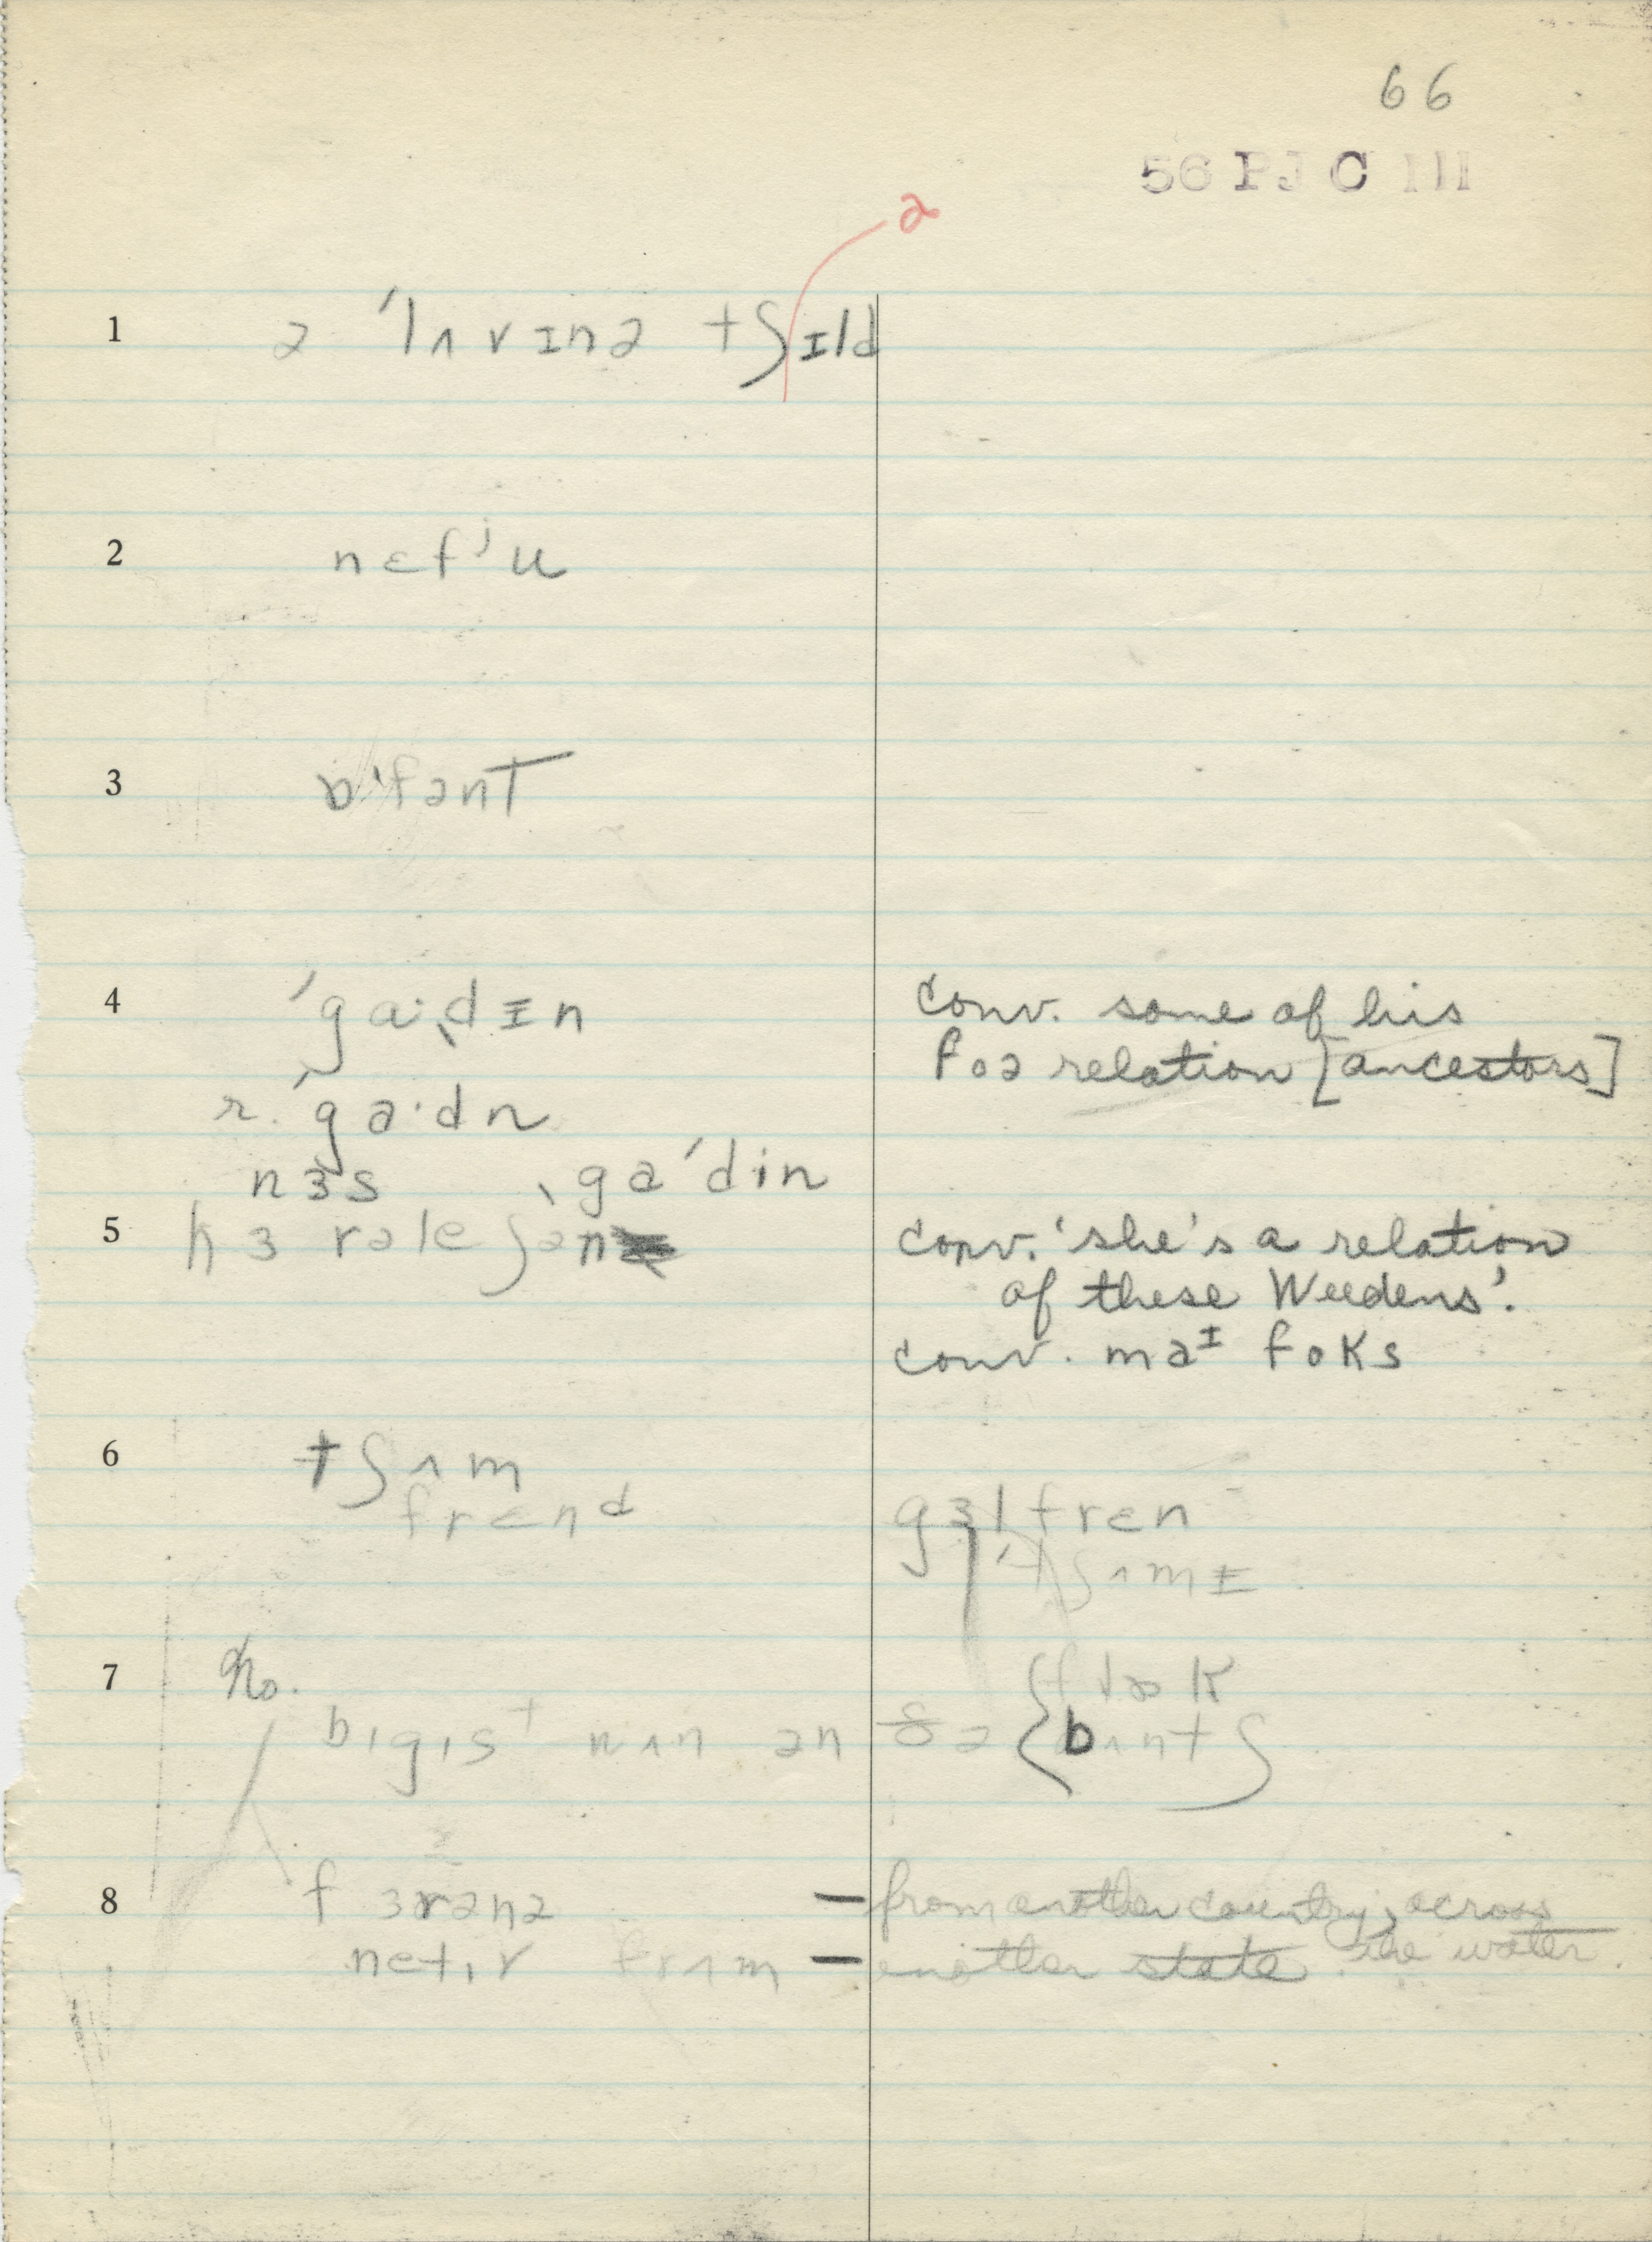 66
56 PJ C III
ə
1 ə ˈlʌvɪnə tʃɪld
2 nɛfʲu
3 ɒˈfənt
4 ˈgaˑdɪn conv. some of his
foə relation [ancestors]
r. ˈgaˑdn
nɜs ˌgaˈdin
5 hɜ rəleʃən conv. 'she's a relation
of these Weedens'.
conv. maᴵ foks
6 tʃʌm
frɛnd gɜl frɛn
ˈtʃʌmɪ
7 No.
bɪgɪst mʌn ən ðə bʌntʃ
8 fɜrənə — from another country, across
the water
netɪv frʌm — another state.